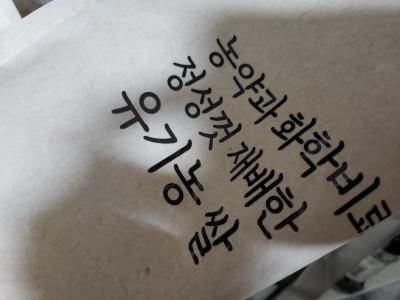 농약과 화학비료
정성껏 재배한
유기농 쌀